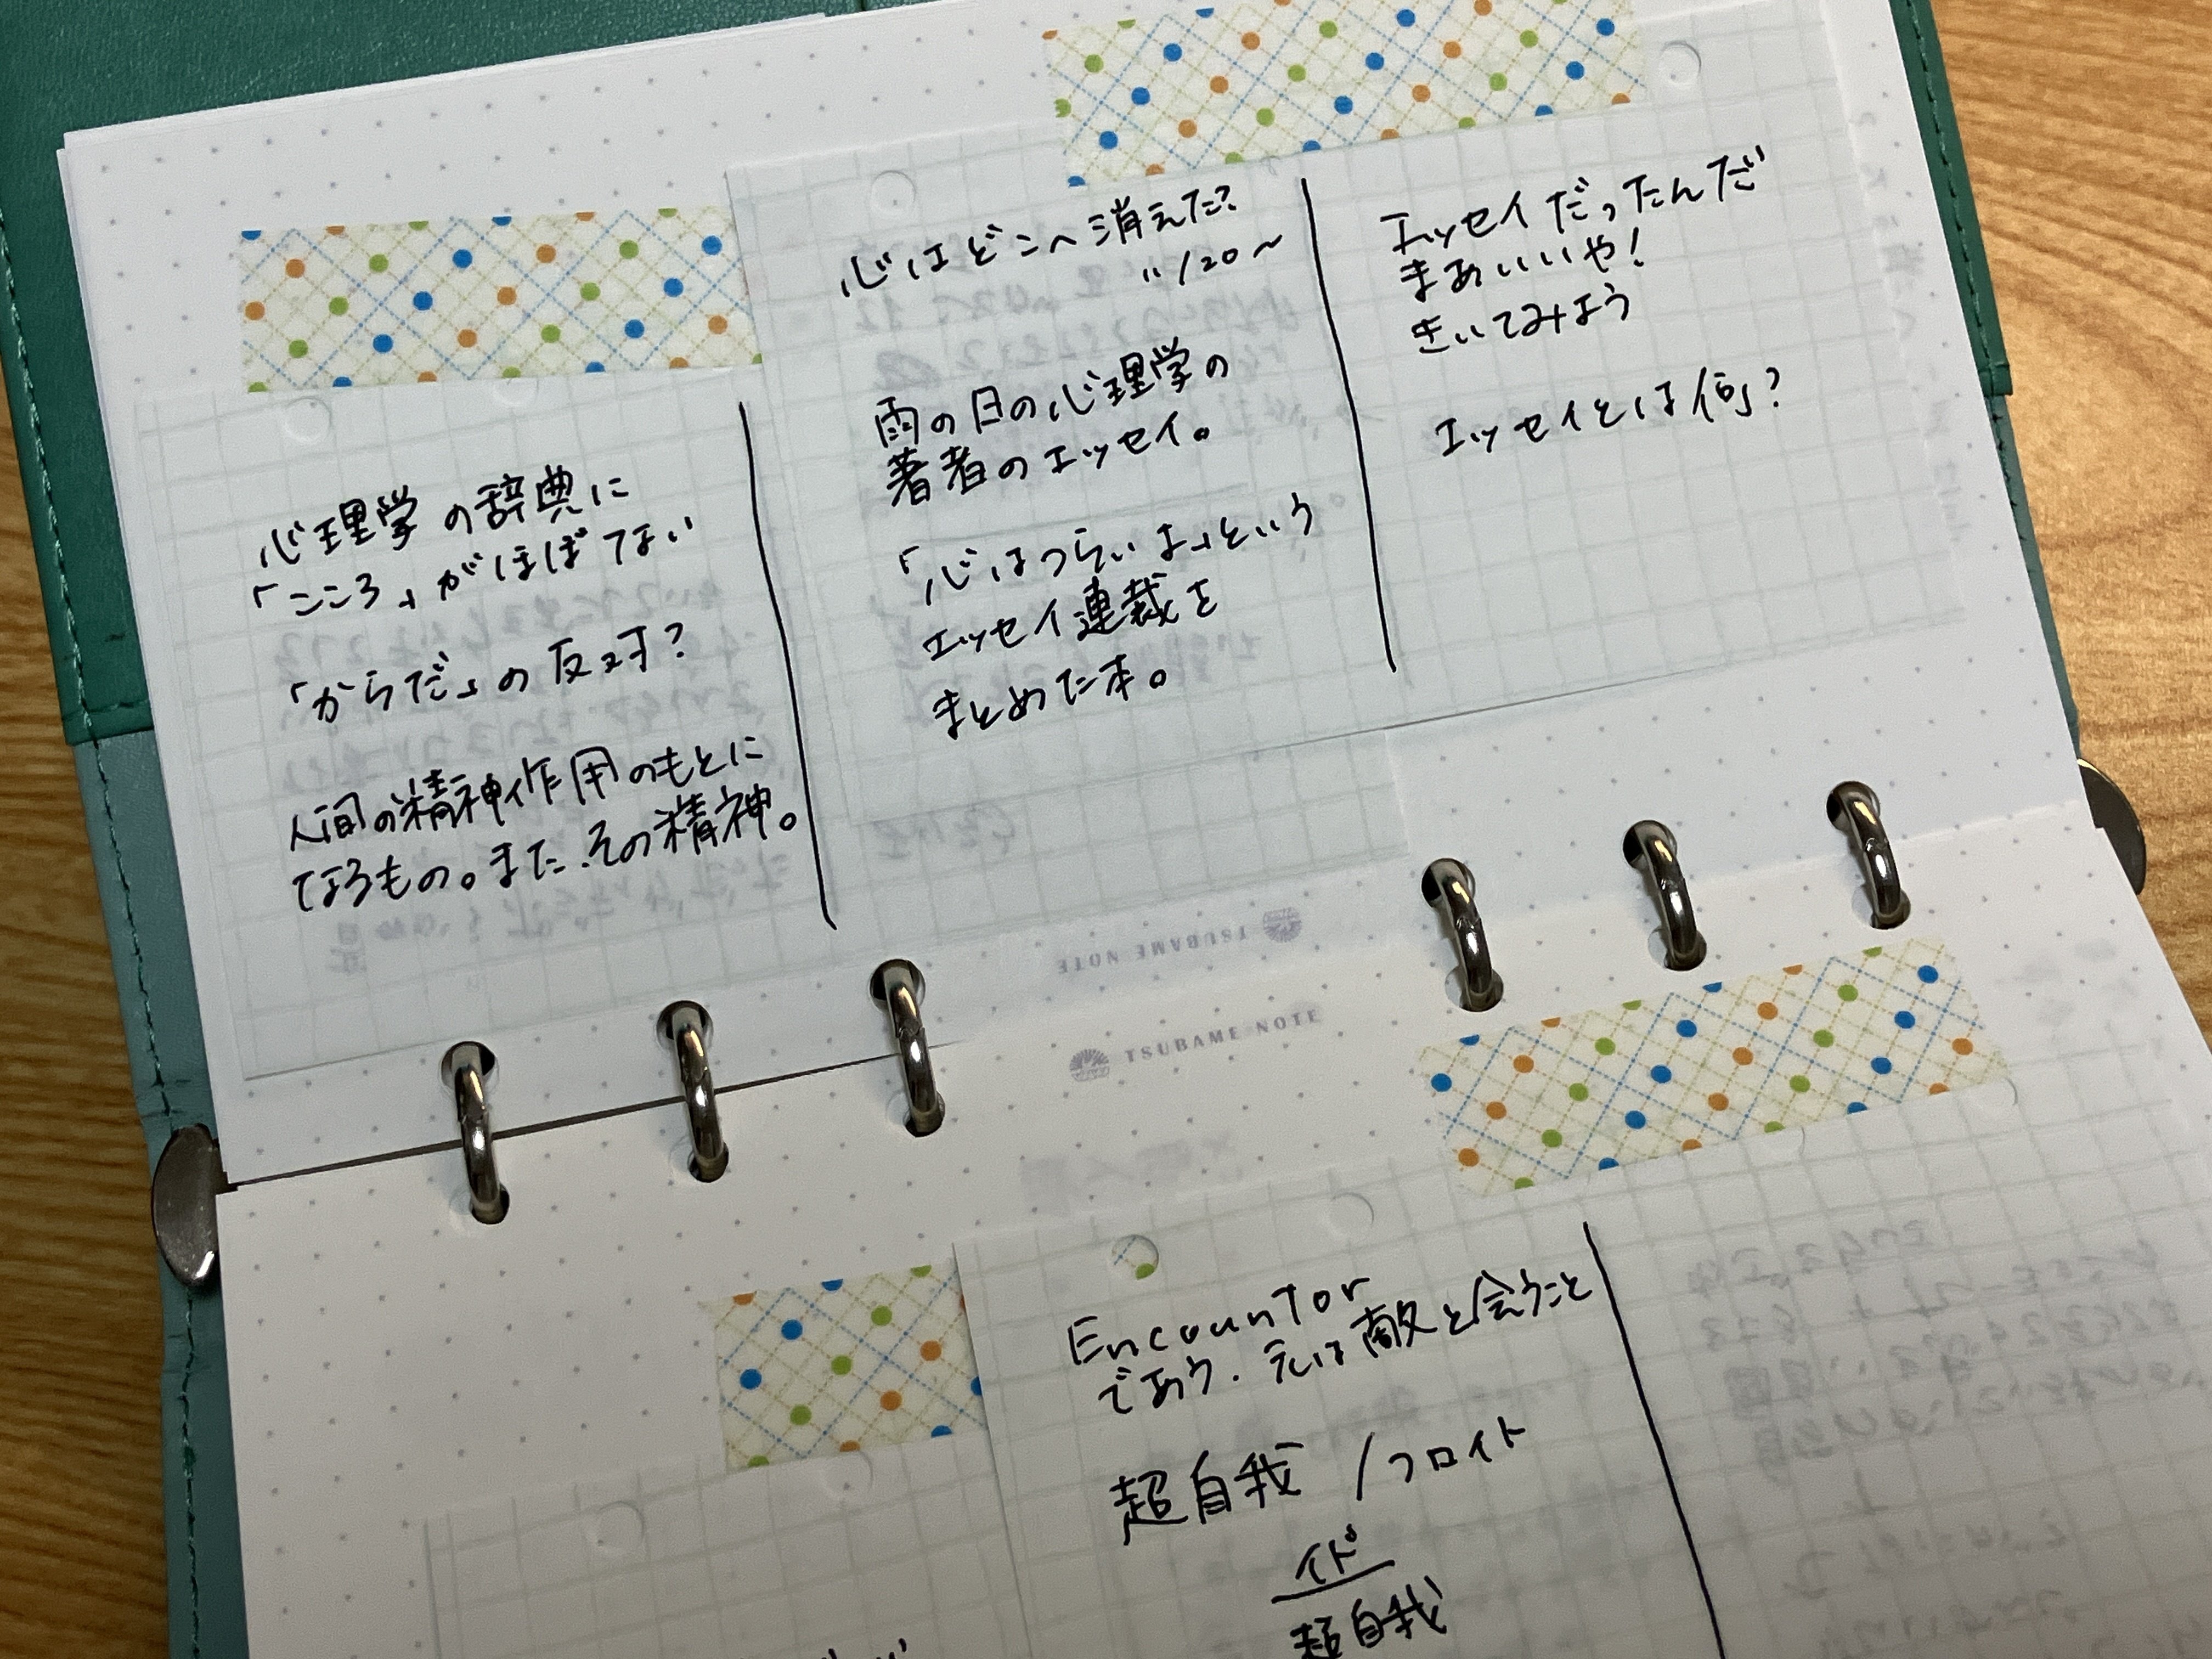 心はどこへ消えた?
11/20〜
雨の日の心理学の
著者のエッセイ。
「心はつらいよ」という
エッセイ連載を
まとめた本。
エッセイだったんだ
まあいいや!
きいてみよう
エッセイとは何?
心理学の辞典に
「こころ」がほぼでない
「からだ」の反対?
人間の精神作用のもとに
なるもの。また、その精神。
TSUBAME NOTE
TSUBAME NOTE
Encountor
であう. 元は敵と会うこと
超自我/フロイト
イド
超自我